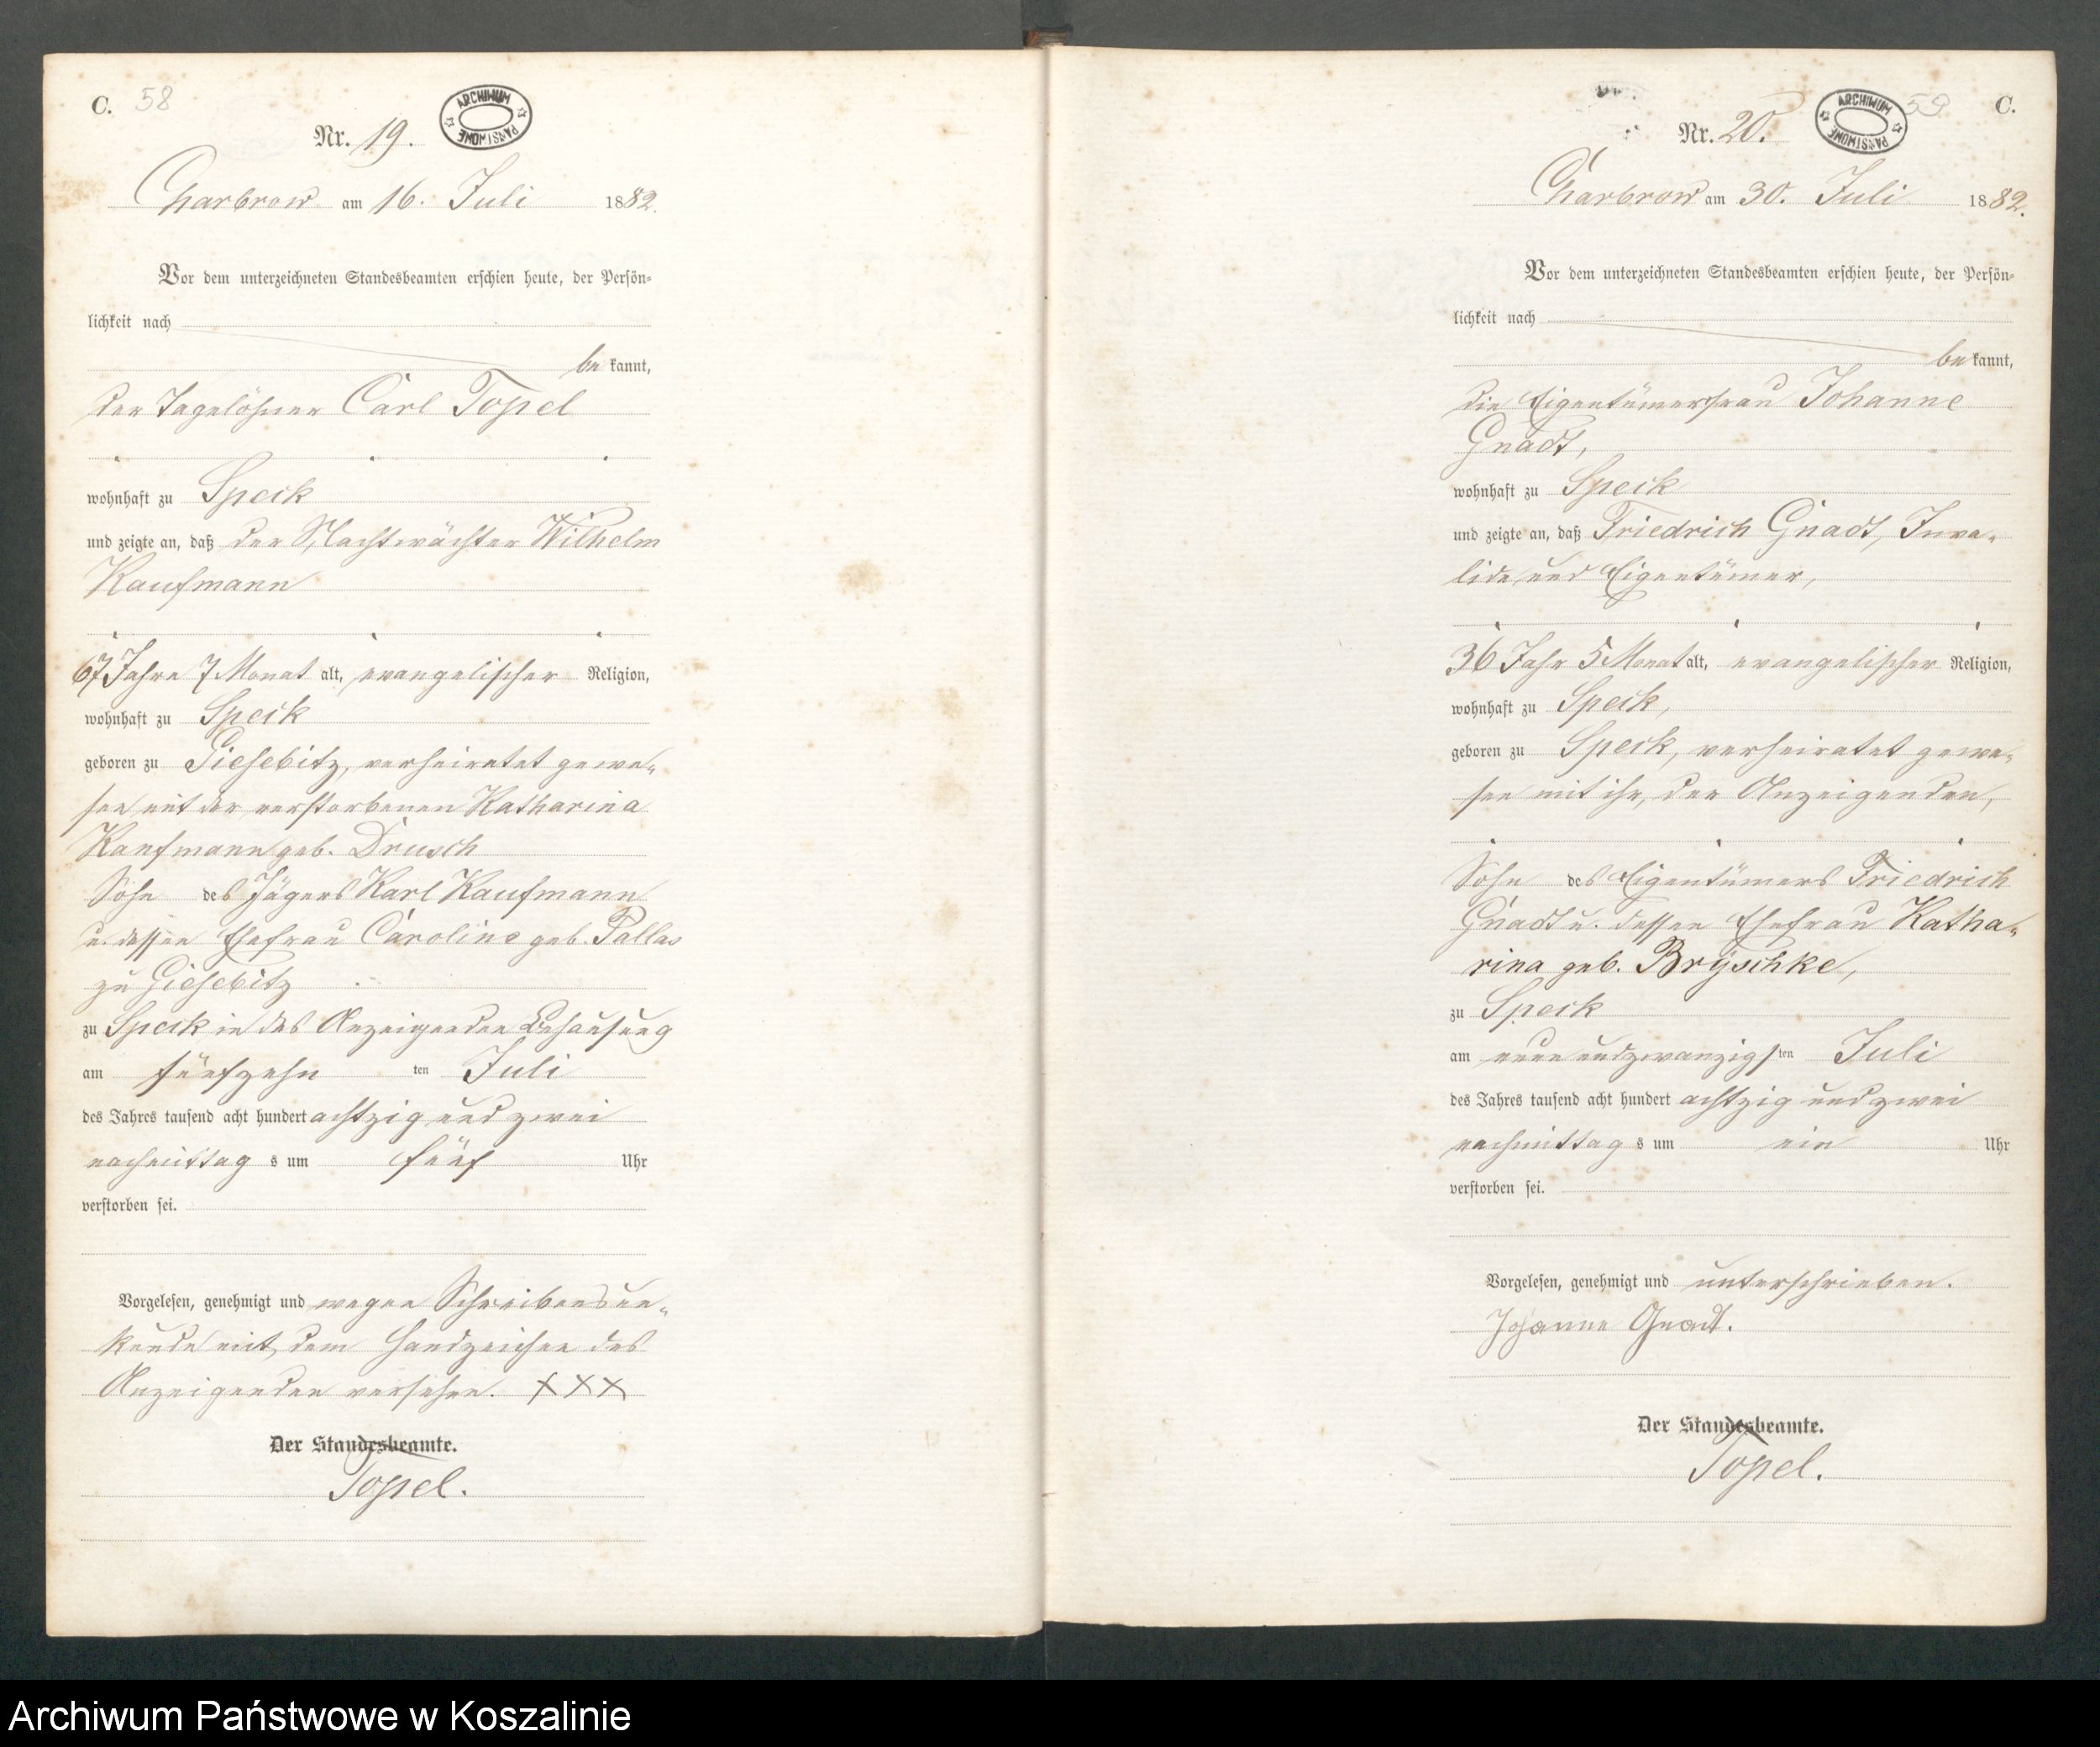 C. 58
ARCHIWUM PAŃSTWOWE
Nr. 19.
Charbrow am 16. Juli 1882.
Vor dem unterzeichneten Standesbeamten erschien heute, der Persön-
lichkeit nach
be kannt,
der Tagelöhner Carl Topel
wohnhaft zu Speck
und zeigte an, daß der Nachtwächter Wilhelm
Kaufmann
67 Jahre 7 Monat alt, evangelischer Religion,
wohnhaft zu Speck
geboren zu Giesebitz, verheiratet gewe-
sen mit der verstorbenen Katharina
Kaufmann geb. Drusch
Sohn des Jägers Karl Kaufmann
u. dessen Ehefrau Caroline geb. Pallas
zu Giesebitz
zu Speck in des Anzeigenden Behausung
am fünfzehn ten Juli
des Jahres tausend acht hundert achtzig und zwei
nachmittag s um fünf Uhr
verstorben sei.
Vorgelesen, genehmigt und wegen Schreibensun-
kunde mit dem Handzeichen des
Anzeigenden versehen. XXX
Der Standesbeamte.
Topel.
59 C.
ARCHIWUM PAŃSTWOWE
Nr. 20.
Charbrow am 30. Juli 1882.
Vor dem unterzeichneten Standesbeamten erschien heute, der Persön-
lichkeit nach
be kannt,
die Eigentümerfrau Johanne
Gnadt,
wohnhaft zu Speck
und zeigte an, daß Friedrich Gnadt, Inva-
lide und Eigentümer,
36 Jahr 5 Monat alt, evangelischer Religion,
wohnhaft zu Speck,
geboren zu Speck, verheiratet gewe-
sen mit ihr, der Anzeigenden,
Sohn des Eigentümers Friedrich
Gnadt u. dessen Ehefrau Katha-
rina geb. Bryschke,
zu Speck
am neun und zwanzigs ten Juli
des Jahres tausend acht hundert achtzig und zwei
nachmittag s um ein Uhr
verstorben sei.
Vorgelesen, genehmigt und unterschrieben.
Johanne Gnadt.
Der Standesbeamte.
Topel.
Archiwum Państwowe w Koszalinie